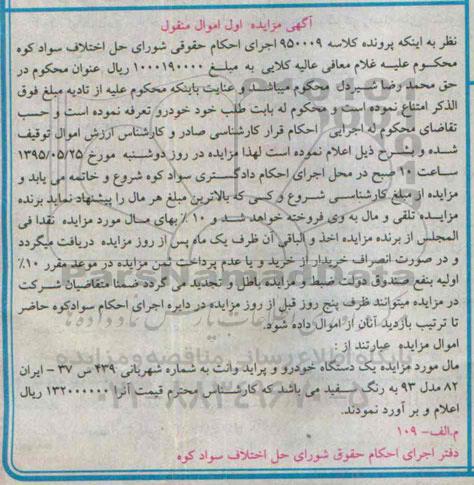 آگهی مزایده اول اموال منقول
نظر به اینکه پرونده کلاسه ۹۵۰۰۰۹ اجرای احکام حقوقی شورای حل اختلاف سواد کوه
محکوم علیه غلام معافی عالیه کلایی به مبلغ ۱۰۰۰۱۹۰۰۰۰ ریال عنوان محکوم در
حق محمد رضا شیردل محکوم میباشد و عنایت باینکه محکوم علیه از تادیه مبلغ فوق
الذکر امتناع نموده است و محکوم له بابت طلب خود خودرو تعرفه نموده است و حسب
تقاضای محکوم له اجرایی احکام قرار کارشناسی صادر و کارشناس ارزش اموال توقیف
شده و بشرح ذیل اعلام نموده است لهذا مزایده در روز دوشنبه مورخ ۱۳۹۵/۰۵/۲۵
ساعت ۱۰ صبح در محل اجرای احکام دادگستری سواد کوه شروع و خاتمه می یابد و
مزایده از مبلغ کارشناسی شروع و کسی که بالاترین مبلغ هر مال را پیشنهاد نماید برنده
مزایده تلقی و مال به وی فروخته خواهد شد و ۱۰٪ بهای مال مورد مزایده نقدا فی
المجلس از برنده مزایده اخذ و الباقی آن ظرف یک ماه پس از روز مزایده دریافت میگردد
و در صورت انصراف خریدار از خرید و یا عدم پرداخت ثمن مزایده در موعد مقرر ۱۰٪
اولیه بنفع صندوق دولت ضبط و مزایده باطل و تجدید می گردد ضمنا متقاضیان شرکت
در مزایده میتوانند ظرف پنج روز قبل از روز مزایده در دایره اجرای احکام سوادکوه حاضر
تا ترتیب بازدید آنان از اموال داده شود.
اموال مزایده عبارتند از :
مال مورد مزایده یک دستگاه خودرو و پراید وانت به شماره شهربانی ۴۳۹ س ۳۷ - ایران
۸۲ مدل ۹۳ به رنگ سفید می باشد که کارشناس محترم قیمت آنرا ۱۳۲۰۰۰۰۰۰ ریال
اعلام و بر آورد نمودند.
م.الف- ۱۰۹
دفتر اجرای احکام حقوقی شورای حل اختلاف سواد کوه
ParsNamadData
پایگاه اطلاع رسانی مناقصه و مزایده
۰۲۱-۸۸۳۴۹۶۷۰-۵